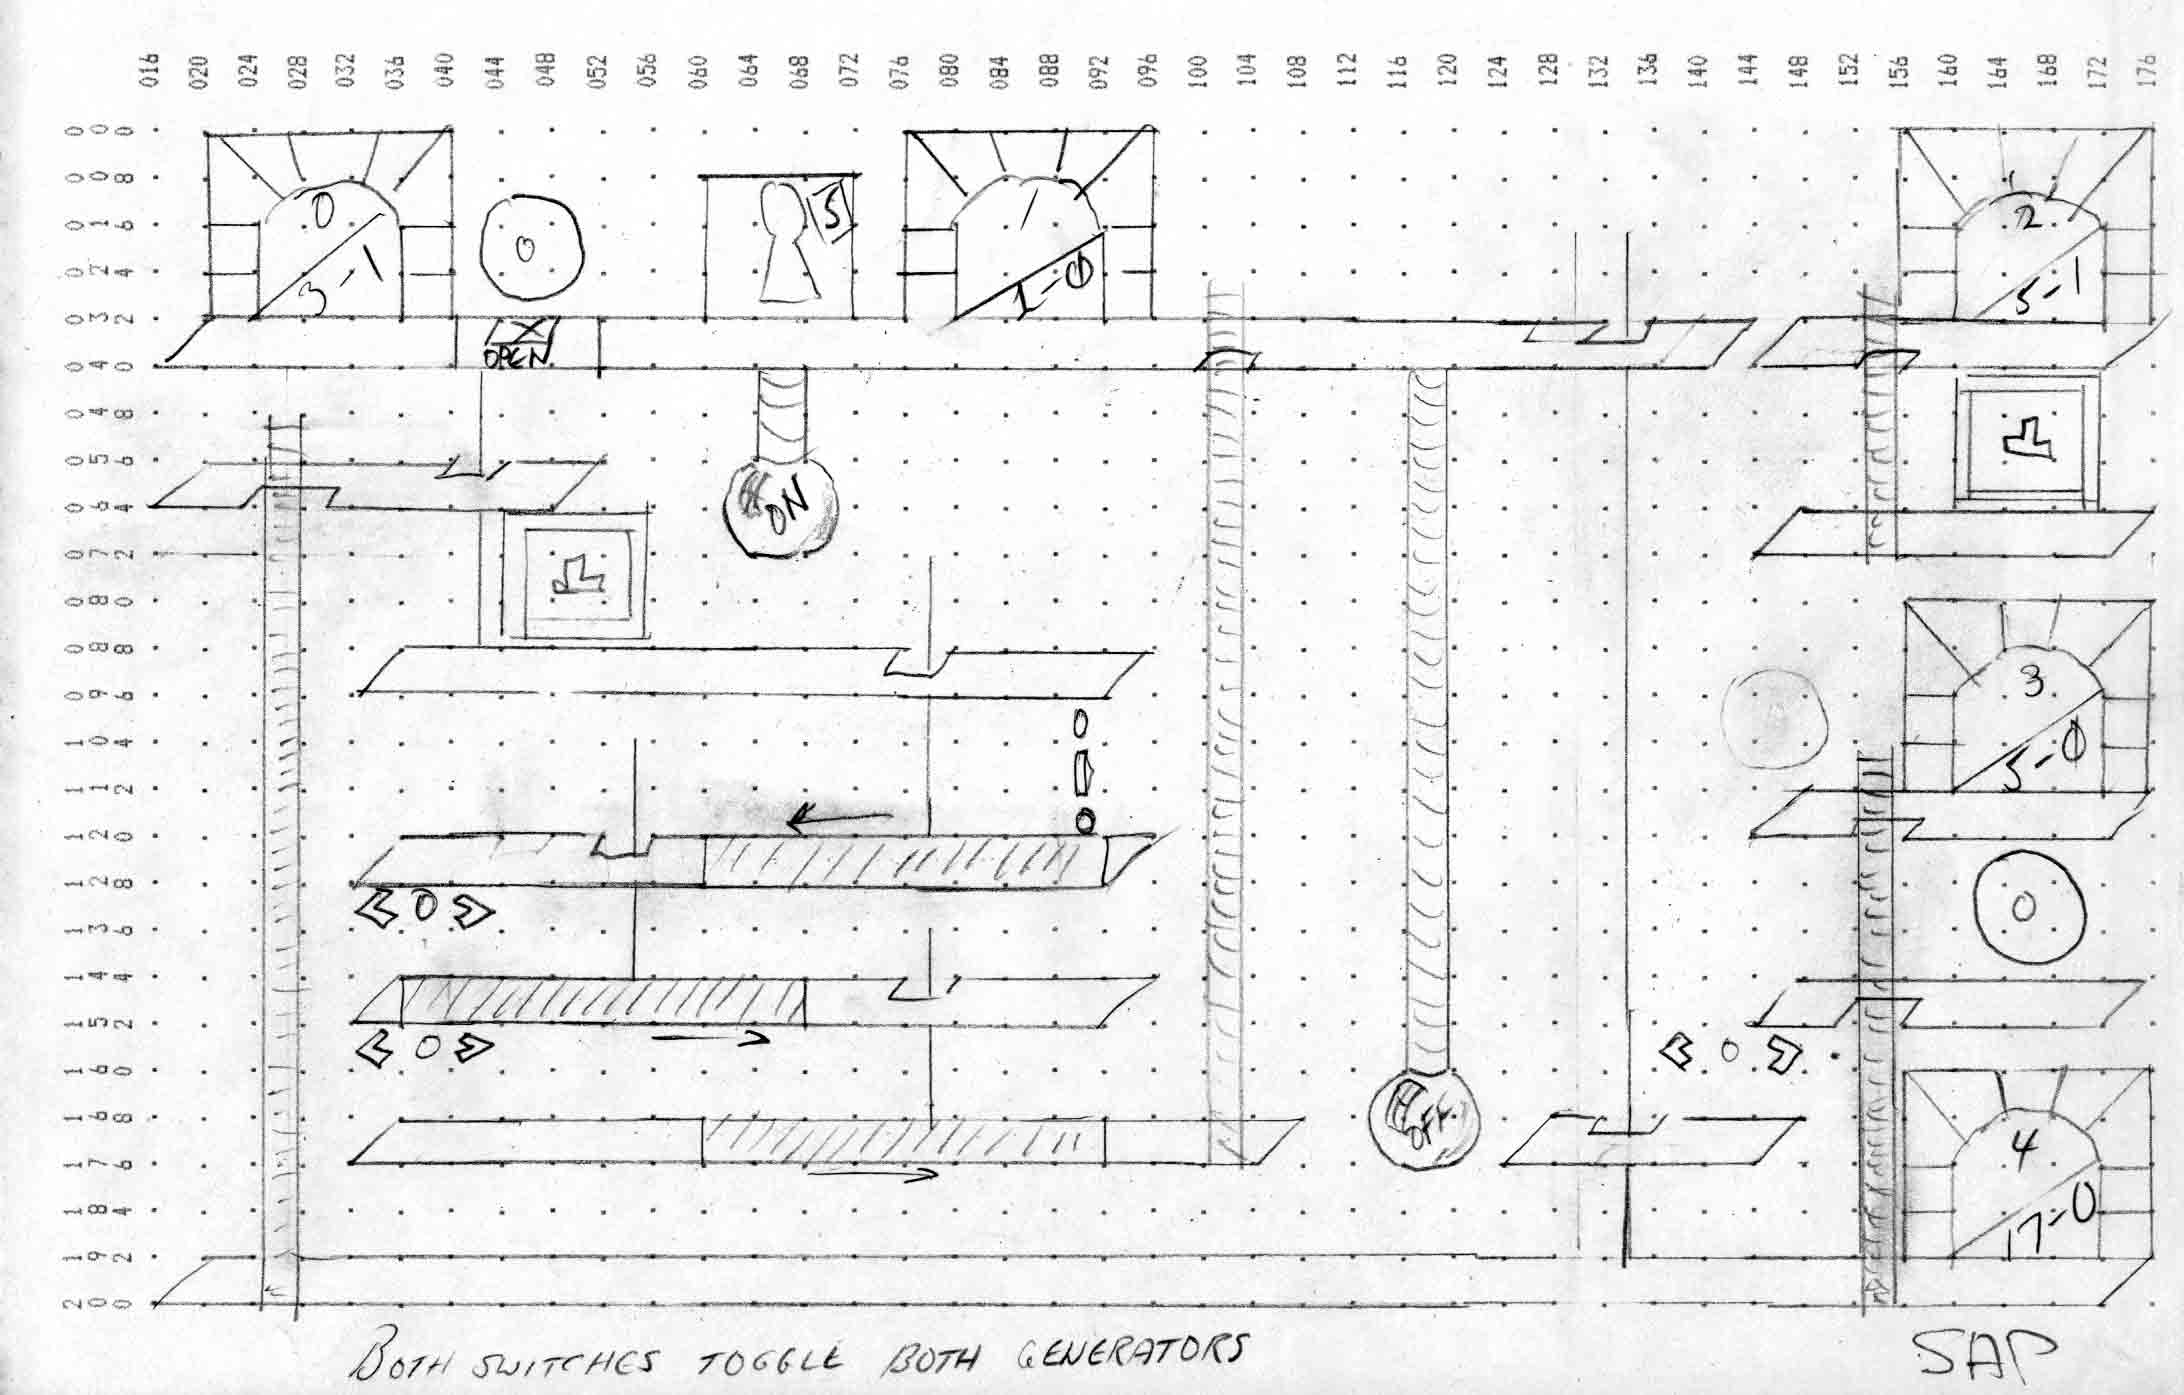 016 020 024 028 032 036 040 044 048 052 056 060 064 068 072 076 080 084 088 092 096 100 104 108 112 116 120 124 128 132 136 140 144 148 152 156 160 164 168 172 176
000
008
016
024
032
040
048
056
064
072
080
088
096
104
112
120
128
136
144
152
160
168
176
184
192
200
0
3-1
0
5
1
1-0
2
5-1
OPEN
ON
3
5-0
0
0
0
0
0
OFF
4
17-0
BOTH SWITCHES TOGGLE BOTH GENERATORS
SAP